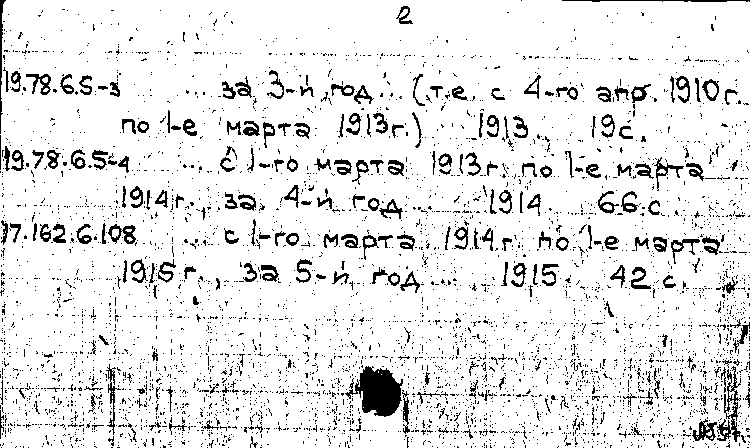 2
19.78.6.5-3 ... за 3-й год... (т.е. с 4-го апр. 1910 г.
по 1-е марта 1913 г.) 1913. 19 с.
19.78.6.5-4 ... с 1-го марта 1913 г. по 1-е марта
1914 г., за 4-й год... 1914. 66 с.
17.162.6.108 ... с 1-го марта 1914 г. по 1-е марта
1915 г., за 5-й год ... 1915. 42 с.